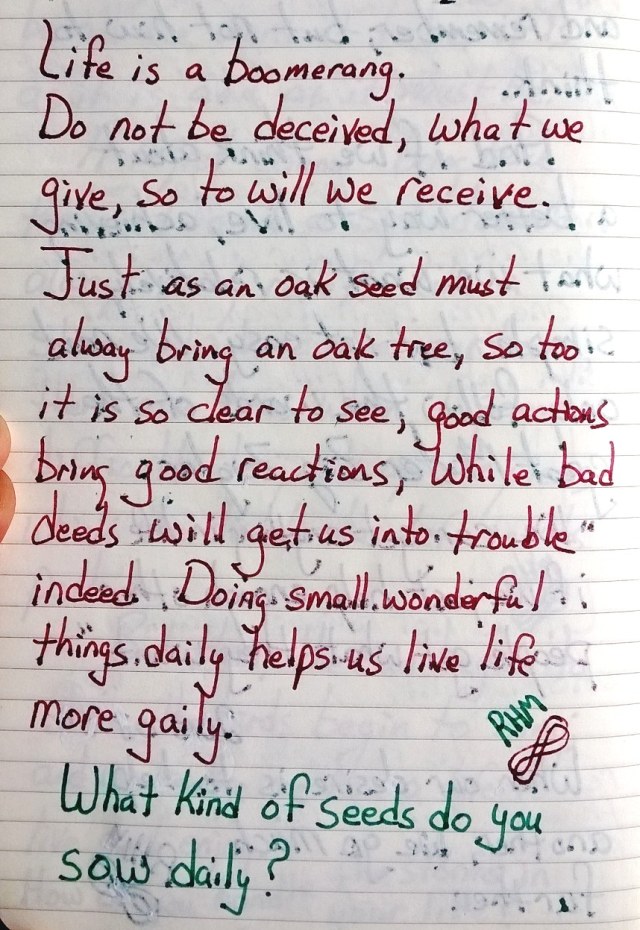 Life is a boomerang.
Do not be deceived, what we
give, so to will we receive.
Just as an oak seed must
alway bring an oak tree, so too
it is so clear to see, good actions
bring good reactions, While bad
deeds will get us into trouble
indeed. Doing small wonderful
things daily helps us live life
more gaily.
RHM
What Kind of seeds do you
sow daily?